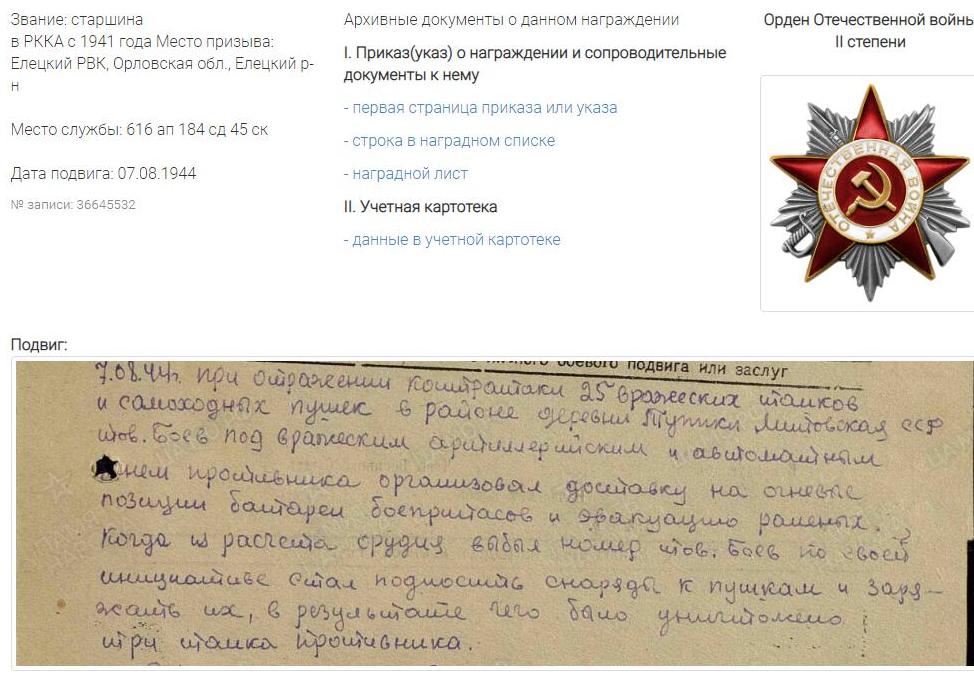 Звание: старшина
в РККА с 1941 года Место призыва:
Елецкий РВК, Орловская обл., Елецкий р-
н
Место службы: 616 ап 184 сд 45 ск
Дата подвига: 07.08.1944
№ записи: 36645532
Архивные документы о данном награждении
I. Приказ(указ) о награждении и сопроводительные
документы к нему
- первая страница приказа или указа
- строка в наградном списке
- наградной лист
II. Учетная картотека
- данные в учетной картотеке
Орден Отечественной войны
II степени
ОТЕЧЕСТВЕННАЯ ВОЙНА
Подвиг:
личного боевого подвига или заслуг
7.08.44г. при отражении контратаки 25 вражеских танков
и самоходных пушек в районе деревни Тупики Литовская ССР
тов. Боев под вражеским артиллерийским и автоматным
огнем противника организовал доставку на огневые
позиции батареи боеприпасов и эвакуацию раненых.
Когда из расчета орудия выбыл номер тов. Боев по своей
инициативе стал подносить снаряды к пушкам и заря-
жать их, в результате чего было уничтожено
три танка противника.